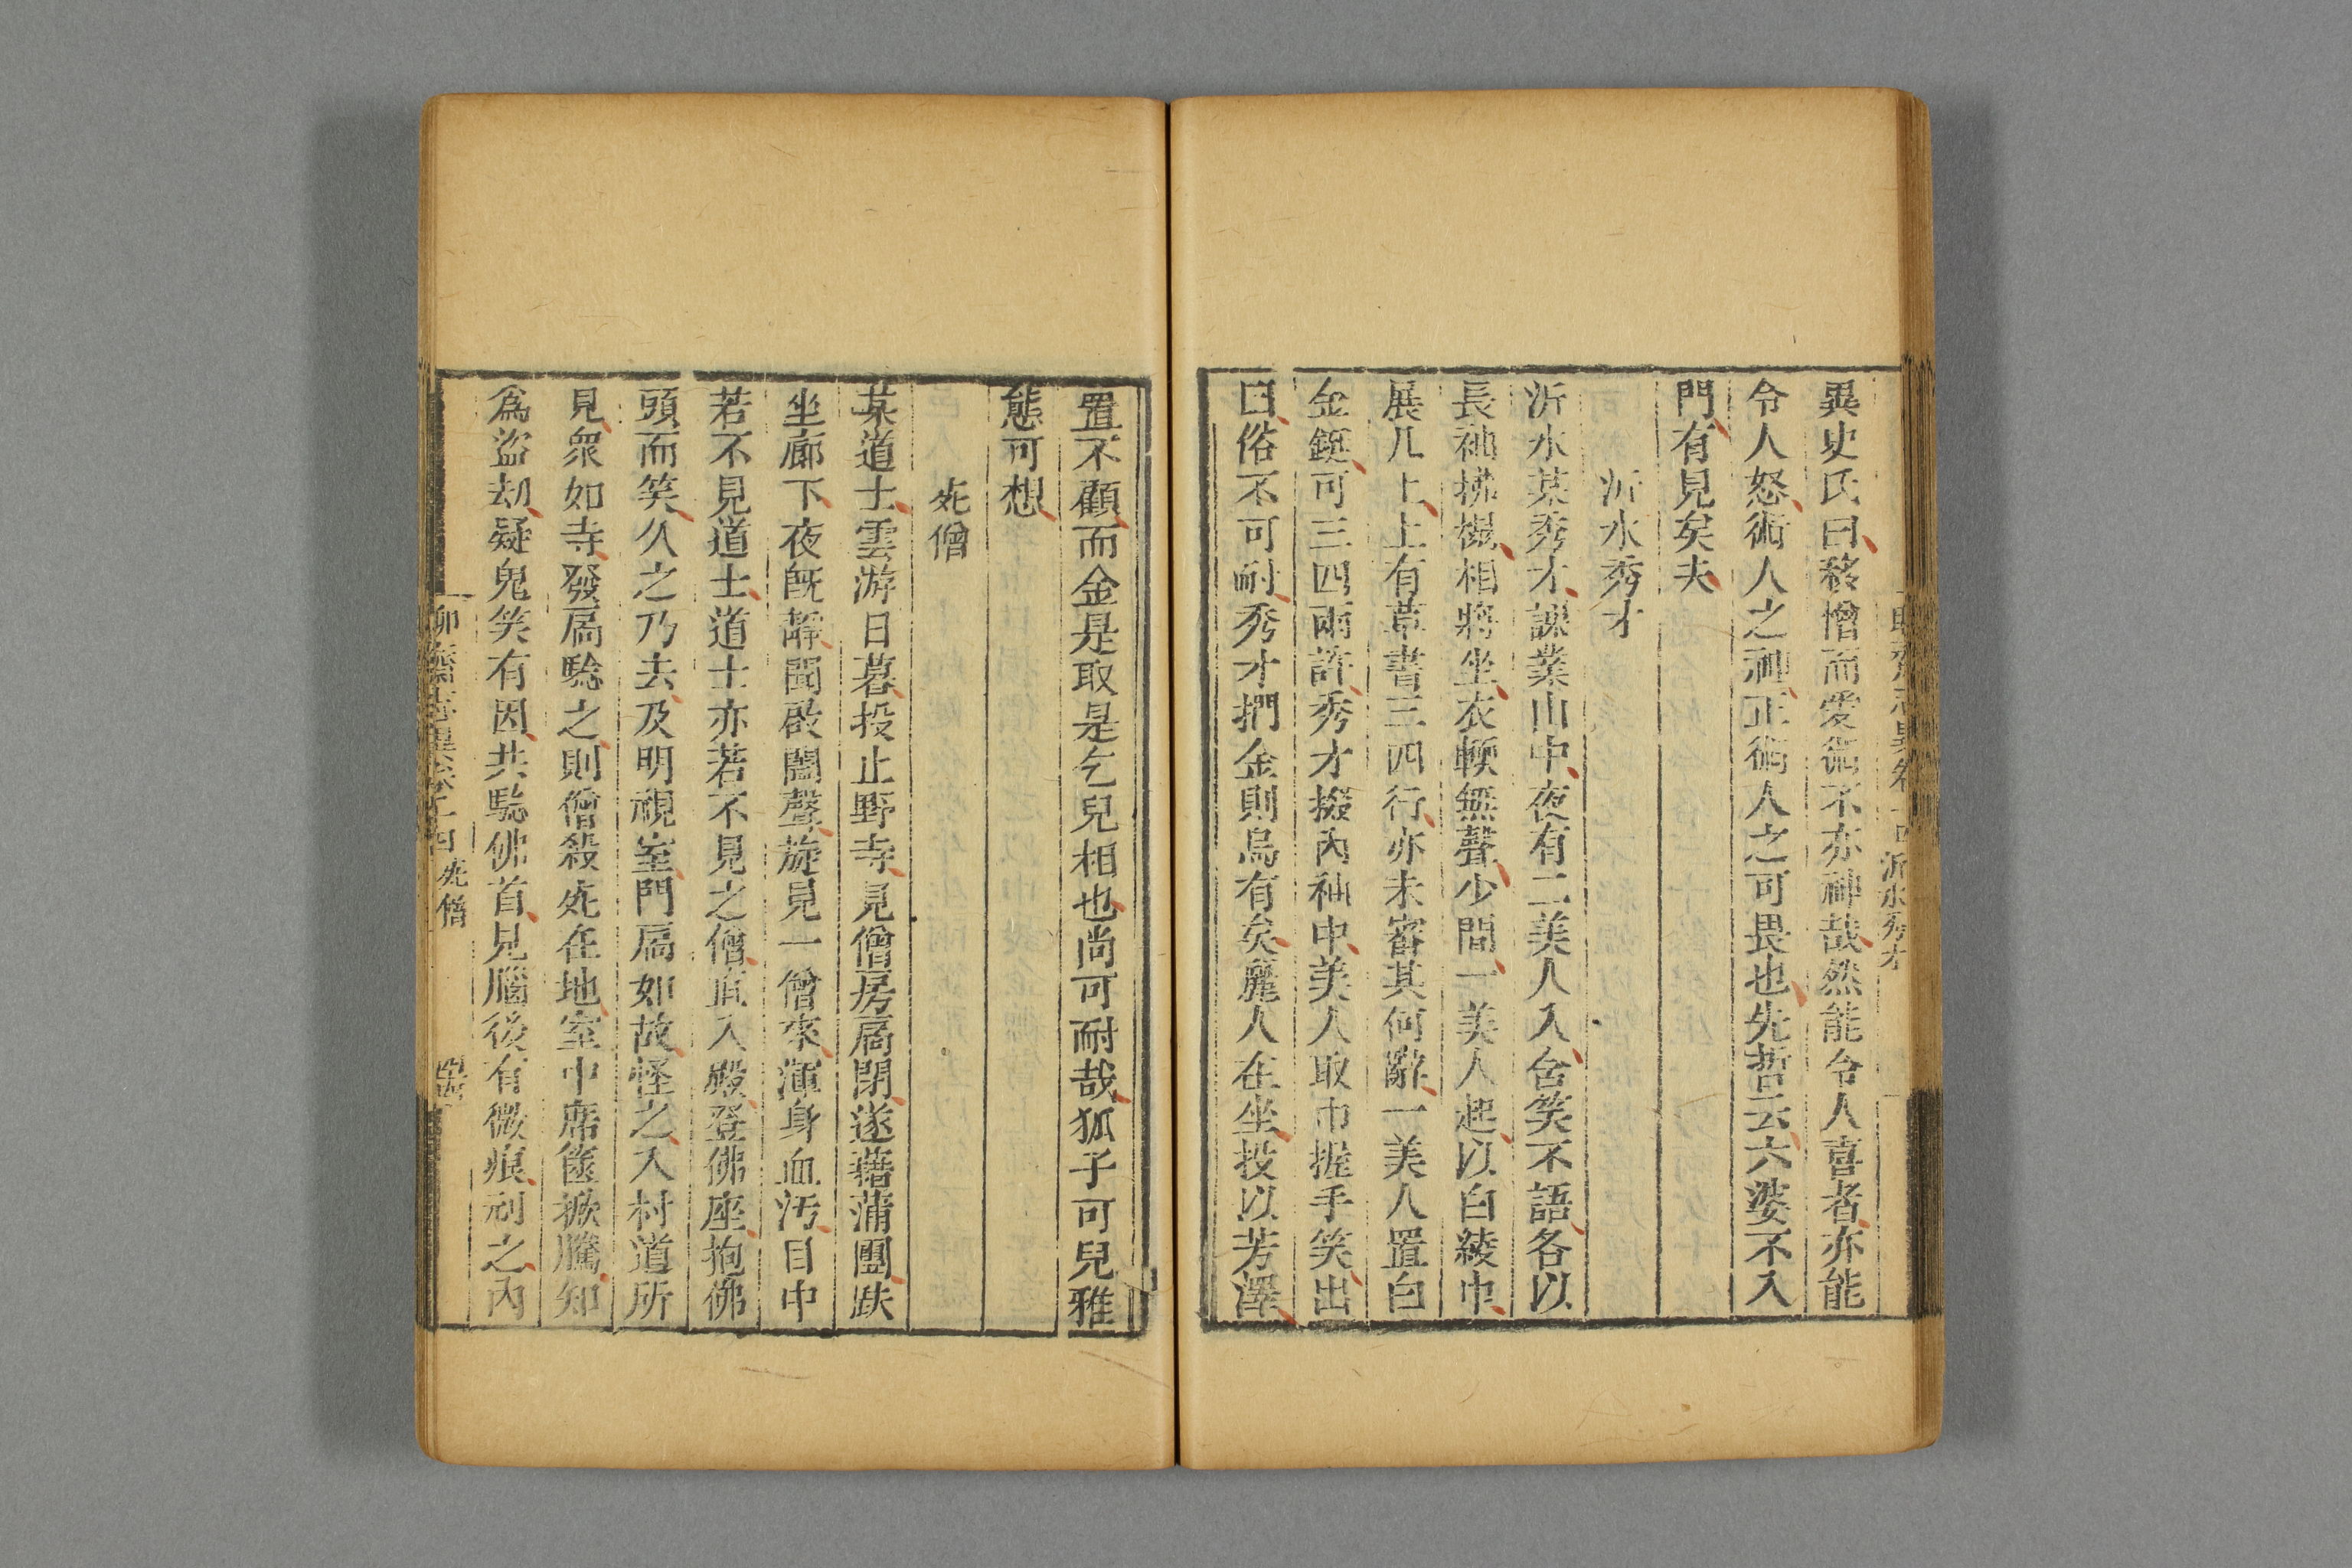 聊齋志異卷十四 沂水秀才
異史氏曰移憎而愛術不亦神哉然能令人喜者亦能
令人怒術人之神正術人之可畏也先哲云六婆不入
門有見矣夫
沂水秀才
沂水某秀才課業山中夜有二美人入含笑不語各以
長袖拂榻相將坐衣輭無聲少間一美人起以白綾巾
展几上上有草書三四行亦未審其何辭一美人置白
金鋌可三四兩許秀才掇內袖中美人取巾握手笑出
曰俗不可耐秀才捫金則烏有矣麗人在坐投以芳澤
置不顧而金是取是乞兒相也尚可耐哉狐子可兒雅
態可想
死僧
某道士雲游日暮投止野寺見僧房扃閉遂藉蒲團趺
坐廊下夜既靜聞啟闔聲旋見一僧來渾身血污目中
若不見道士道士亦若不見之僧直入殿登佛座抱佛
頭而笑久之乃去及明視室門扃如故怪之入村道所
見衆如寺發扃騐之則僧殺死在地室中席篋掀騰知
爲盜刼疑鬼笑有因共騐佛首見腦後有微痕刓之內
聊齋志異卷十四 死僧